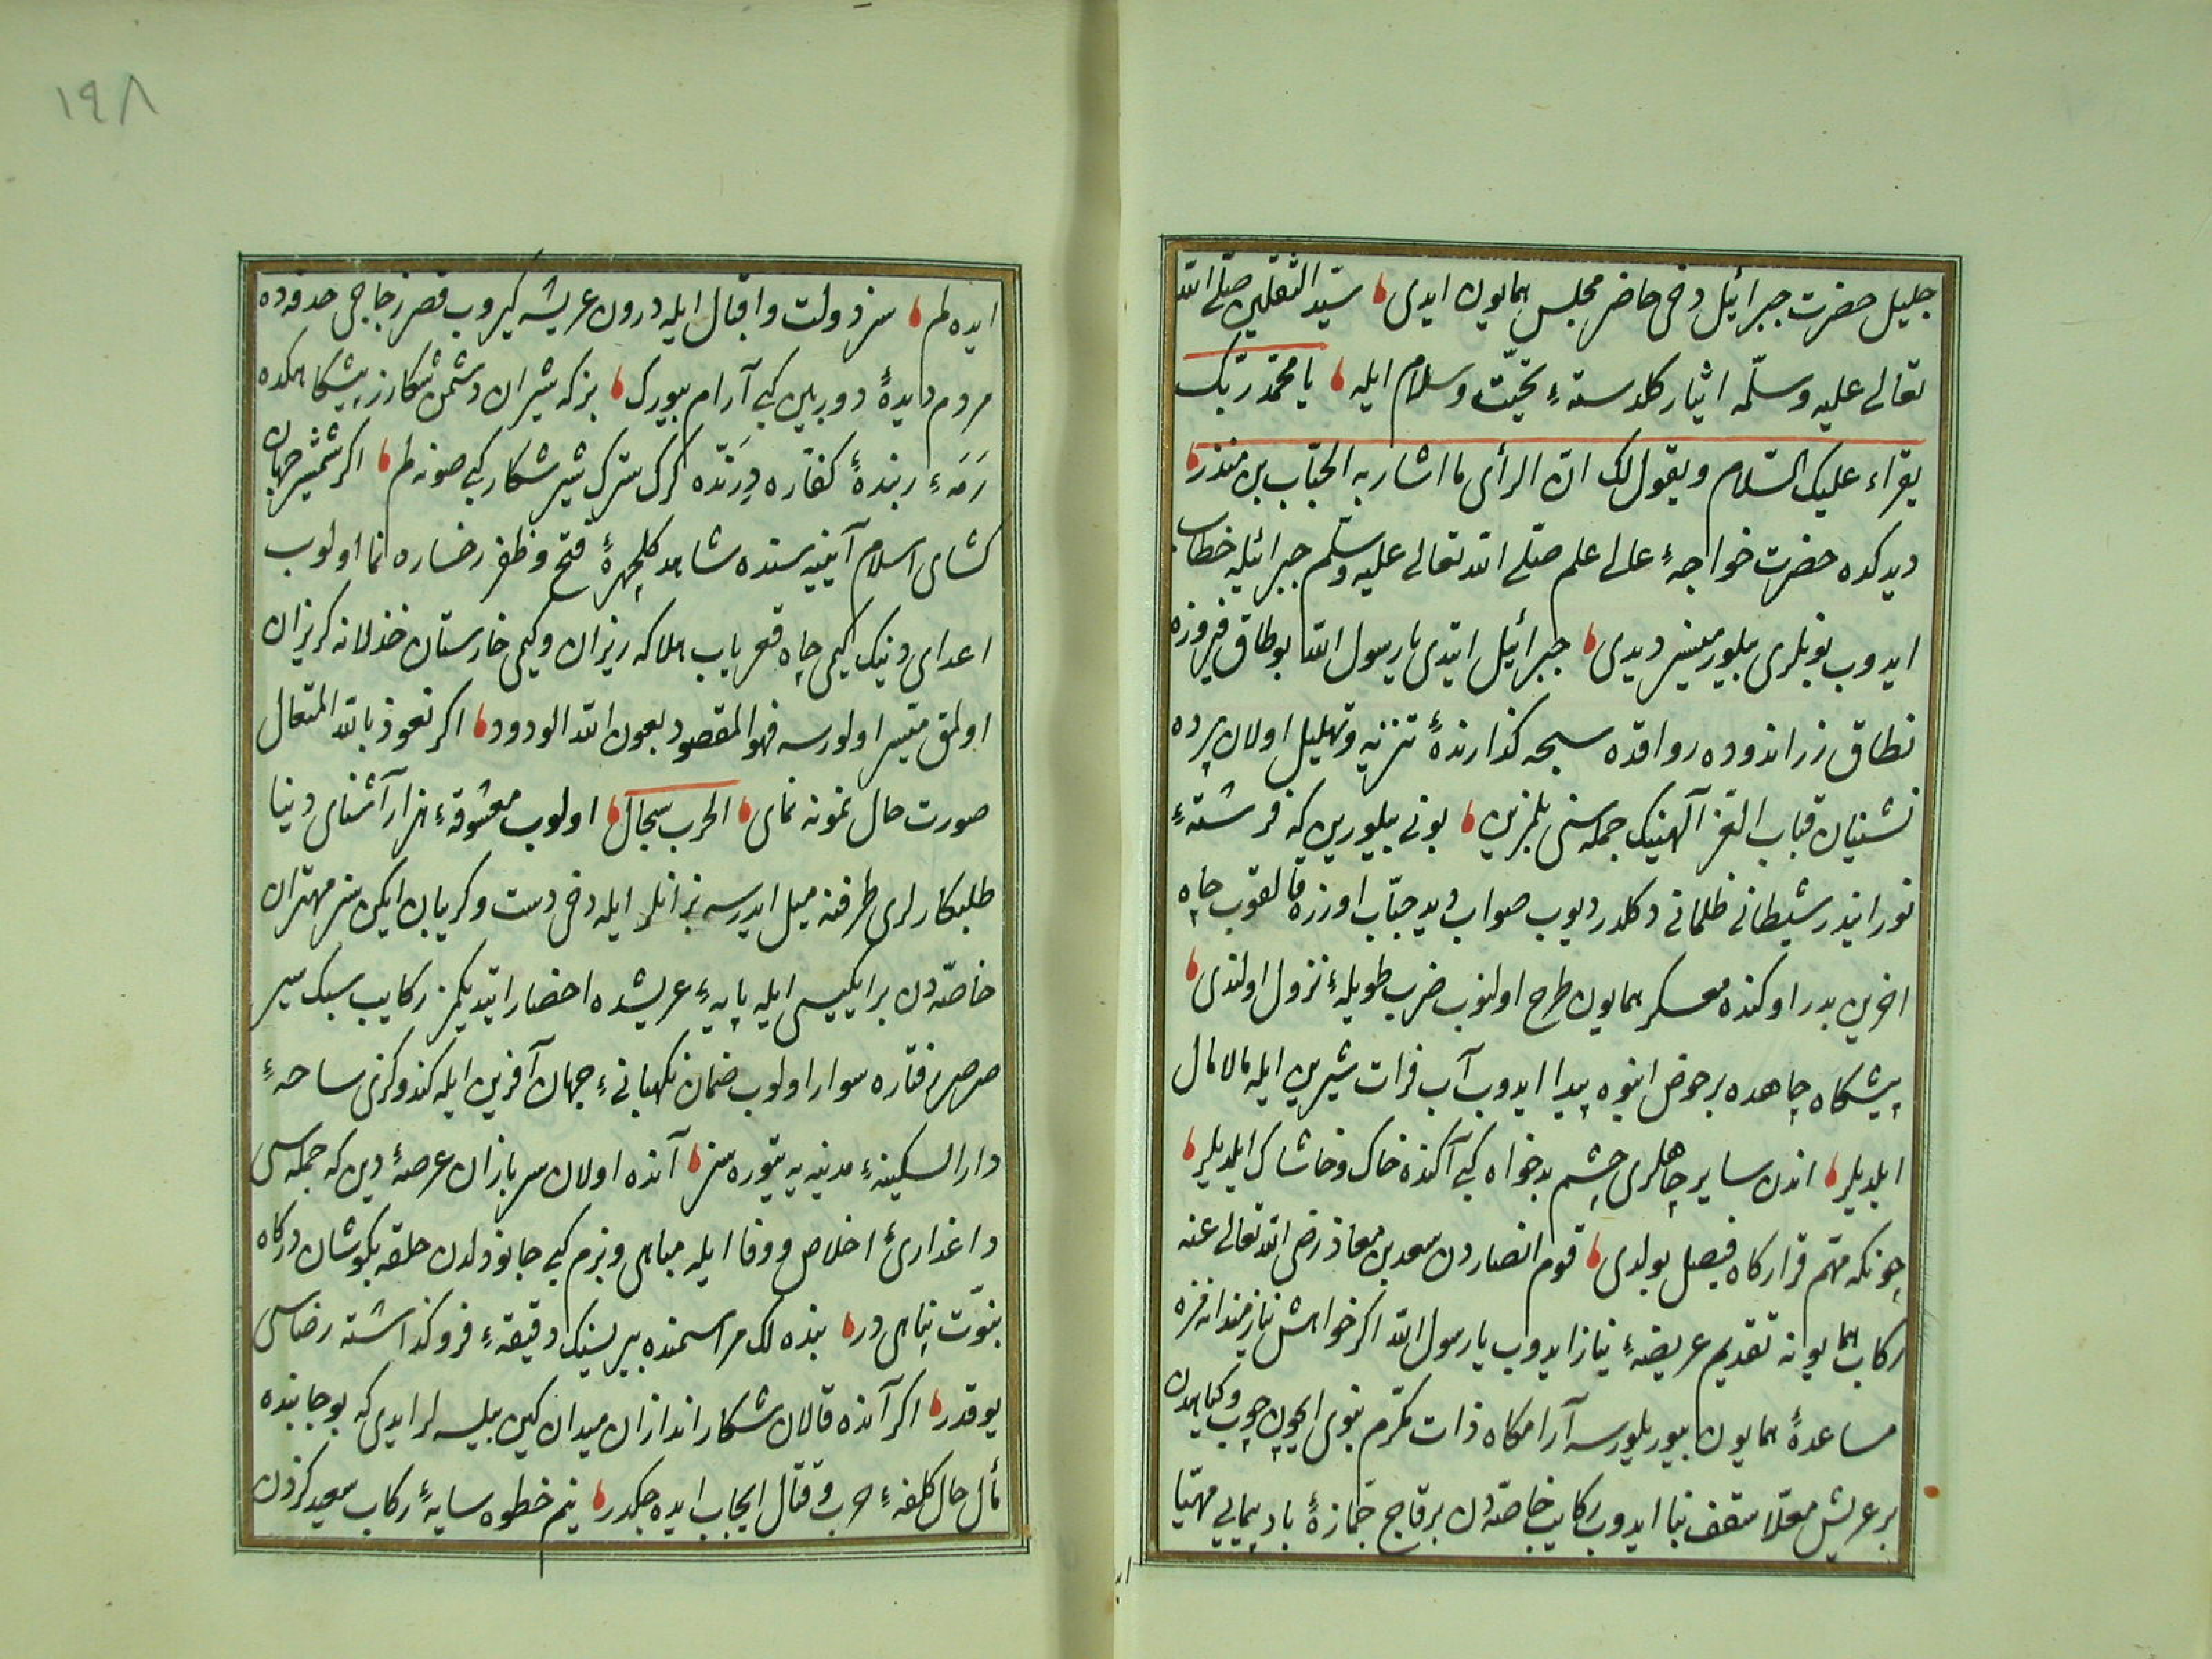 جليل حضرت جبرائيل دخى حاضر مجلس همايون ايدى سيّد الثقلين صلّى الله
تعالى عليه وسلّمه ايثار كلدستهٔ تحيّت وسلام ايله يا محمّد ربّك
يقراء عليك السّلام ويقول لك انّ الرأى ما اشار به الحبّاب بن منذر
ديدكده حضرت خواجهٔ عالى علم صلّى الله تعالى عليه وسلّم جبرائيله خطاب
ايدوب بونلرى بيلورميسز ديدى جبرائيل ايتدى يا رسول الله بو طاق فيروزه
نطاق زر اندوده رواقده سبحه كذارندهٔ تنزيه وتهليل اولان پرده
نشينان قباب العزّ آلهينك جمله سنى بلمزين بونى بيلورين كه فرشتهٔ
نورانيدر شيطانى ظلمانى دكلدر ديوب صوابديد حبّاب اوزره قالقوب چاه
اخرين بدر اوكنده معسكر همايون طرح اولنوب ضرب طويلهٔ نزول اولندى
پيشكاه چاهده بر حوض انبوه پيدا ايدوب آب فرات شيرين ايله مالامال
ايلديلر اندن ساير چاهلرى چشم بدخواه كبى آكنده خاك وخاشاك ايلديلر
چونكه مهمّ قراركاه فيصل بولدى قوم انصاردن سعد بن معاذ رضى الله تعالى عنه
ركاب همايونه تقديم عريضهٔ نياز ايدوب يا رسول الله اكر خواهش نيازمندانه مزه
مساعدهٔ همايون بيوريلورسه آرامكاه ذات مكرّم نبوى ايچون چوب وكياهدن
بر عريش معلّا سقف بنا ايدوب ركايب خاصّه دن بر قاچ جمّازهٔ باد پيمايى مهيّا
١٩٨
ايده لم سز دولت واقبال ايله درون عريشه كيروب قصر زجاجى حدقه ده
مردم ديدهٔ دوربين كبى آرام بيورك بز كه شيران دشمن شكارز پيشكاهكده
رَمَهٔ رمندهٔ كفّاره دِرَنّده كرك سترك شير شكار كبى صونه لم اكر شمشير جهان
كشاى اسلام آيينه سنده شاهد كلچهرهٔ فتح وظفر رخساره نما اولوب
اعداى دينك كيمى چاه قعرياب هلاكه ريزان وكيمى خارستان خذلانه كريزان
اولمق متيسر اولورسه فهو المقصود بعون الله الودود اكر نعوذ بالله المتعال
صورت حال نمونه نماى الحرب سجال اولوب معشوقهٔ هزار آشناى دنيا
طلبكارلرى طرفنه ميل ايدرسه بز انلر ايله دخى دست وكريبان ايكن سز مهتران
خاصّه دن بر ايكيسى ايله پايهٔ عريشده احضار ايتديكمز ركايب سبك سير
صرصر رفتاره سوار اولوب ضمان نكهبانىٔ جهان آفرين ايله كندوكزى ساحهٔ
دار السكينهٔ مدينه يه يتوره سز آنده اولان سربازان عرصهٔ دين كه جمله سى
داغدارىٔ اخلاص ووفا ايله مباهى وبزم كبى جان ودلدن حلقه بكوشان دركاه
نبوّت پناهى در بنده لك مراسمنده بيرينك دقيقهٔ فروكذاشته رضاسى
يوقدر اكر آنده قالان شكار اندازان ميدان كين بيلسه لر ايدى كه بو جانبده
مآل حال كلفهٔ حرب وقتال ايجاب ايده جكدر نيم خطوه سايهٔ ركاب سعيدكزدن